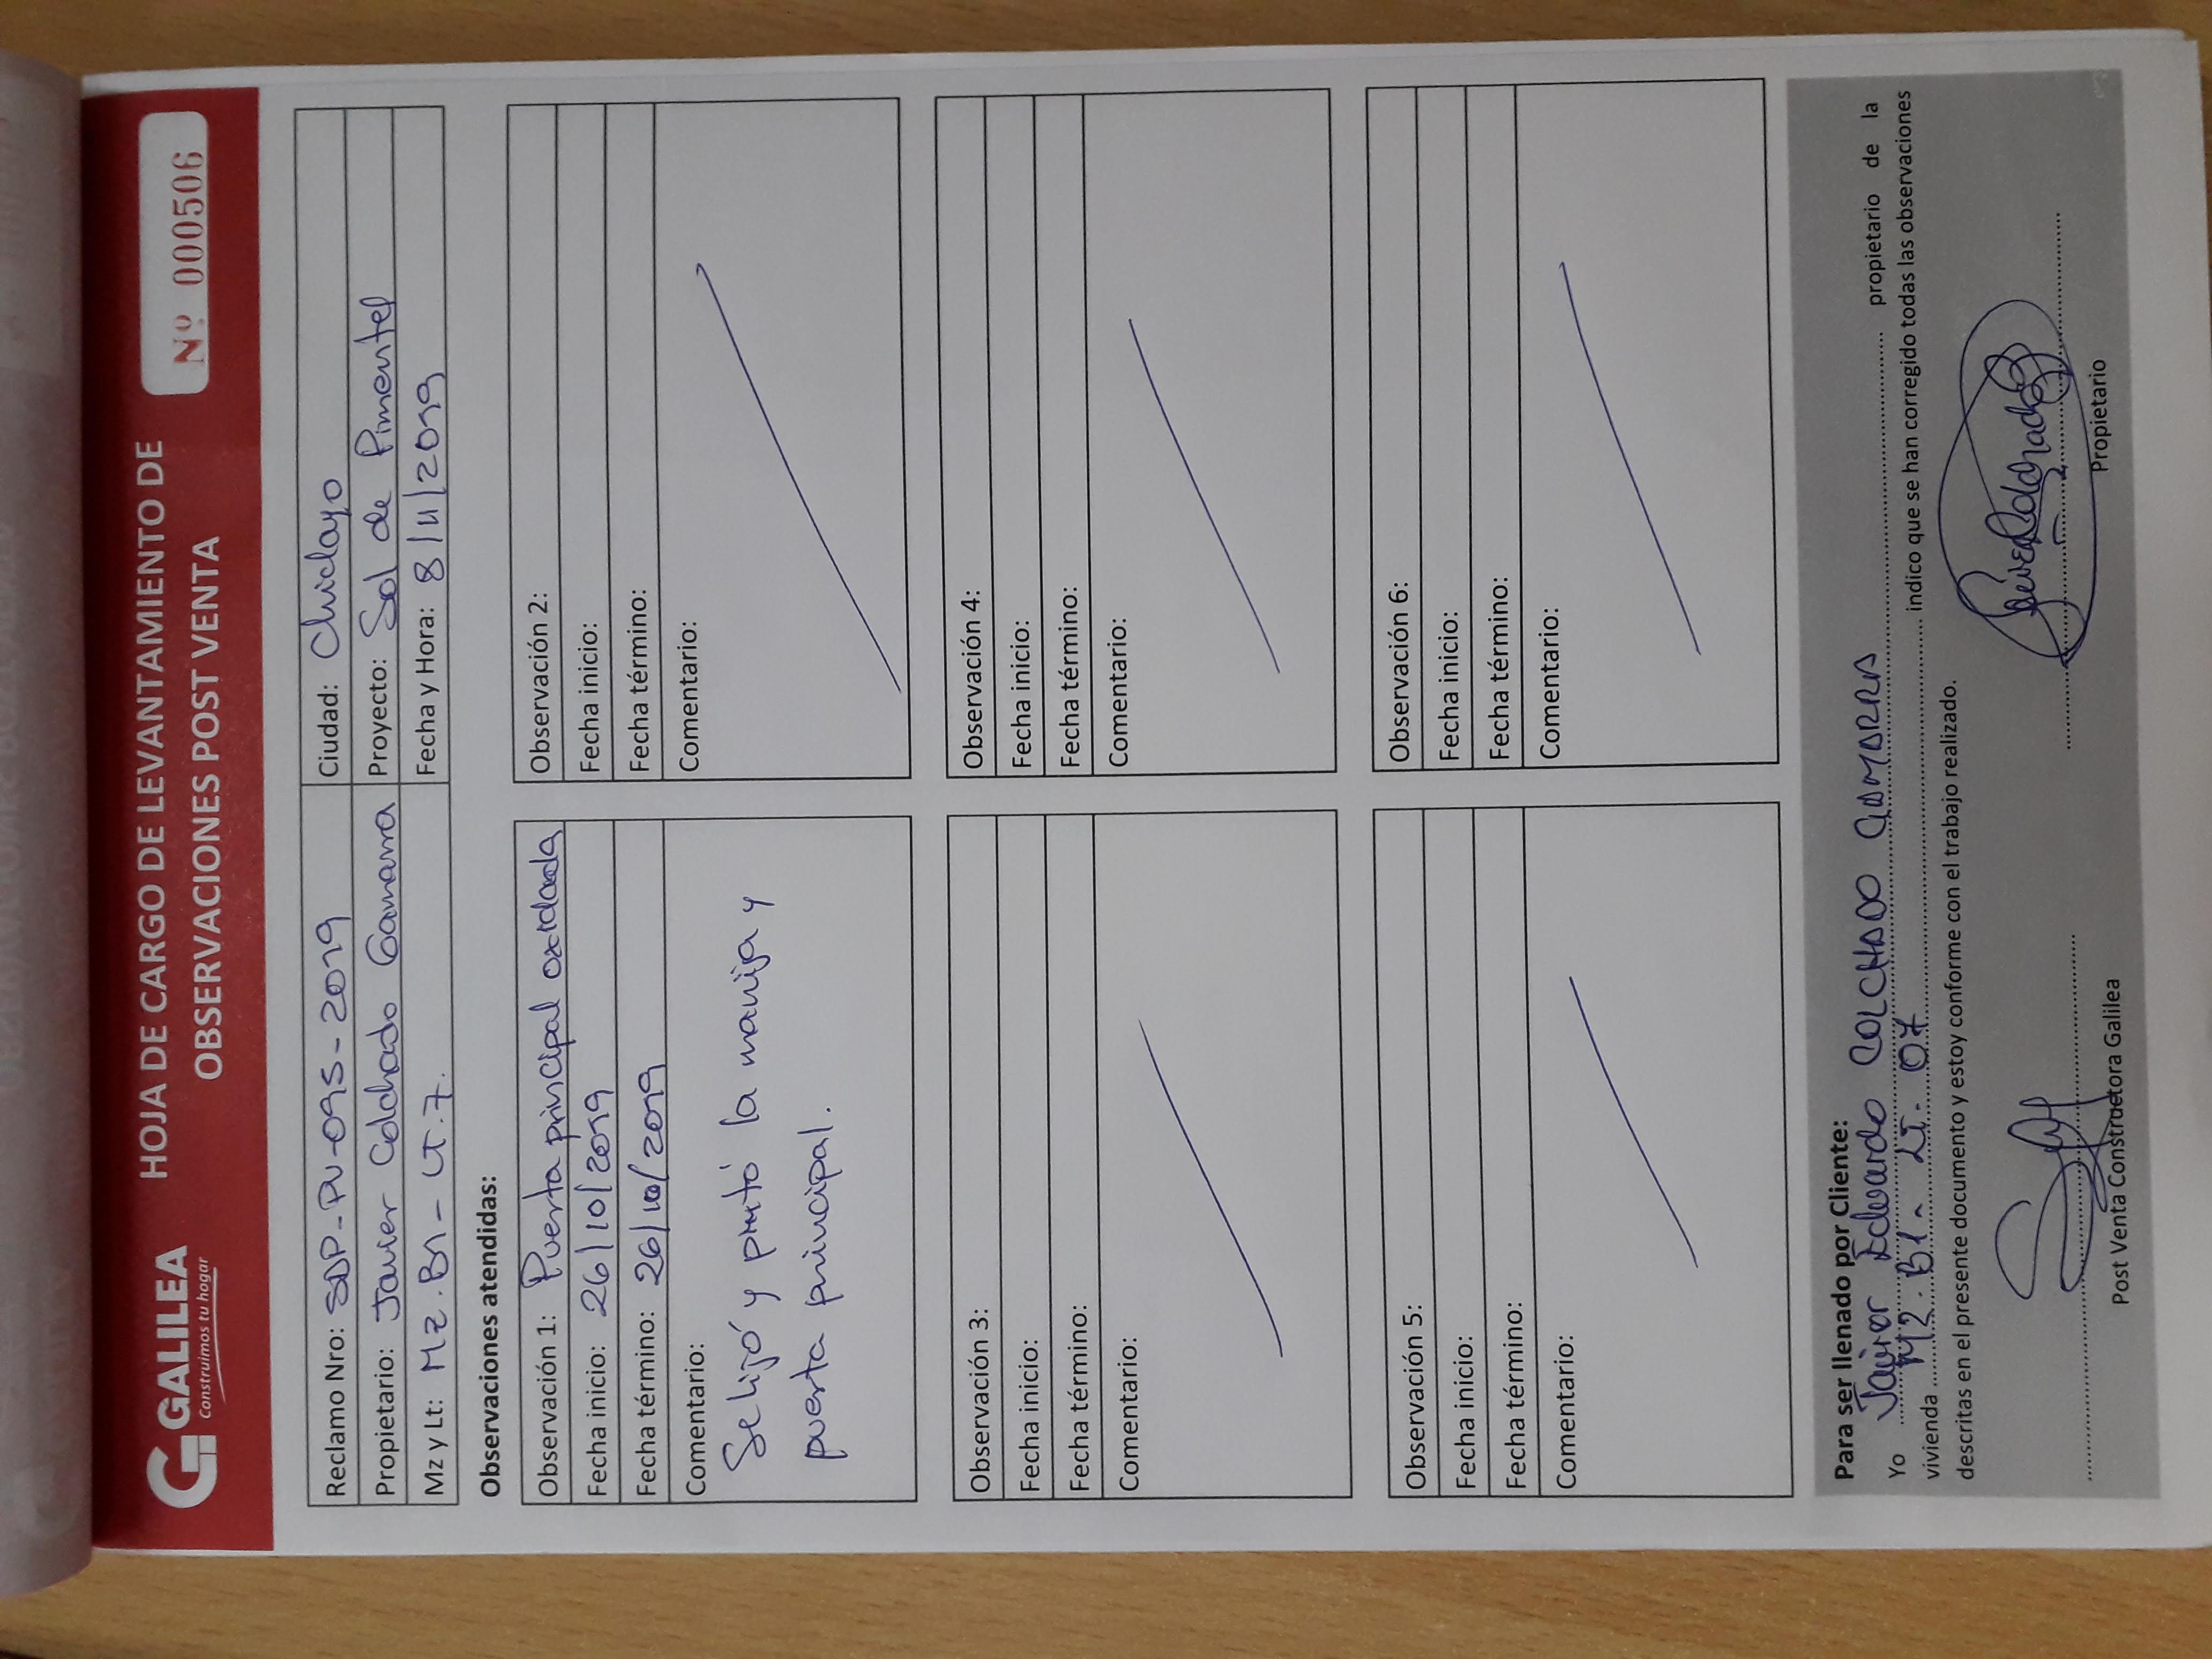 GALILEA
Construimos tu hogar
HOJA DE CARGO DE LEVANTAMIENTO DE
OBSERVACIONES POST VENTA
Nº 000506
Reclamo Nro: SDP-PV-095-2019
Ciudad: Chiclayo
Propietario: Javier Colchado Gamarra
Proyecto: Sol de Pimentel
Mz y Lt: Mz. B1 - LT. 7.
Fecha y Hora: 8/11/2019
Observaciones atendidas:
Observación 1: Puerta principal oxidada
Fecha inicio: 26/10/2019
Fecha término: 26/10/2019
Comentario:
Se lijó y pintó la manija y
puerta principal.
Observación 2:
Fecha inicio:
Fecha término:
Comentario:
Observación 3:
Fecha inicio:
Fecha término:
Comentario:
Observación 4:
Fecha inicio:
Fecha término:
Comentario:
Observación 5:
Fecha inicio:
Fecha término:
Comentario:
Observación 6:
Fecha inicio:
Fecha término:
Comentario:
Para ser llenado por Cliente:
Yo Javier Eduardo COLCHADO GAMARRA propietario de la
vivienda MZ. B1. LT. 07 indico que se han corregido todas las observaciones
descritas en el presente documento y estoy conforme con el trabajo realizado.
Post Venta Constructora Galilea
Propietario